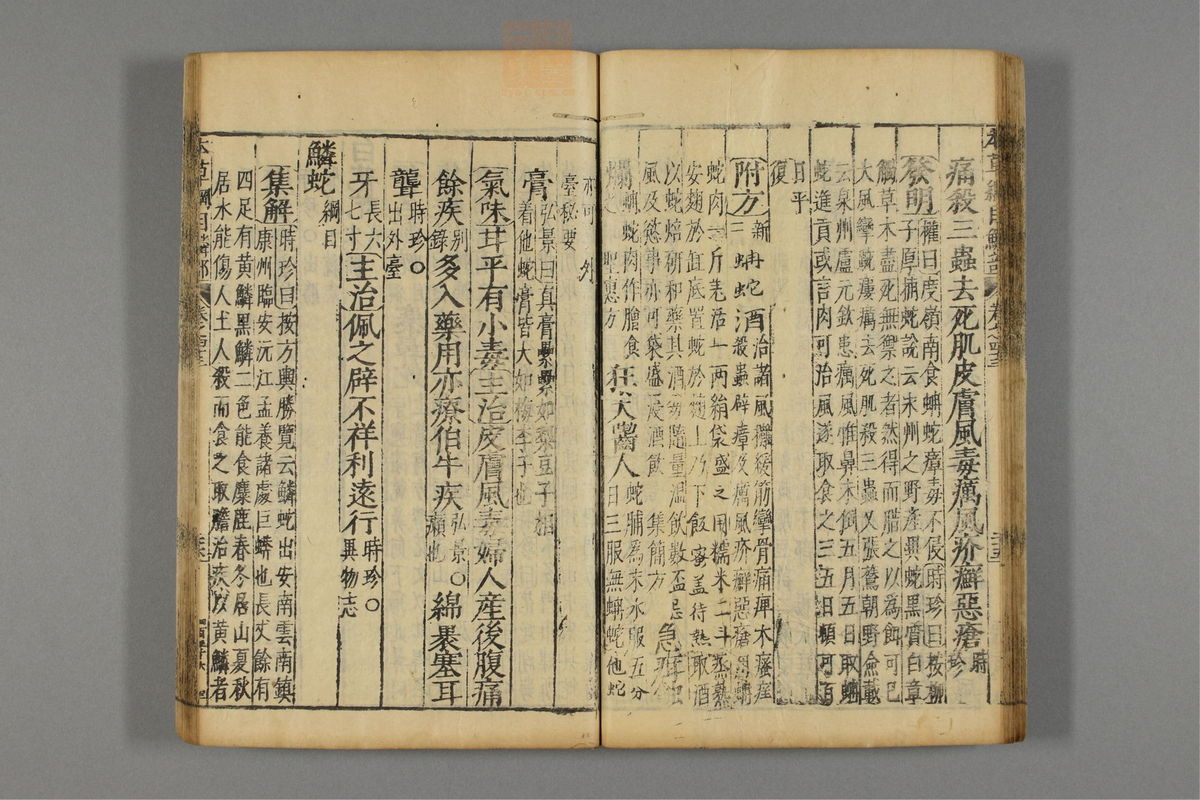 痛殺三蟲去死肌皮膚風毒癘風疥癬惡瘡時珍
發明權曰度嶺南食蚺蛇瘴毒不侵時珍曰按柳
子厚捕蛇說云永州之野產異蛇黑質白章
觸草木盡死無禦之者然得而腊之以為餌可已
大風攣踠瘻癘去死肌殺三蟲又張鷟朝野僉載
云泉州盧元欽患癘風惟鼻未倒五月五日取蚺
蛇進貢或言肉可治風遂取食之三五日頓可百
日平
復
附方新三蚺蛇酒治諸風癱緩筋攣骨痛痺木瘙痒
殺蟲辟瘴及癘風疥癬惡瘡用蚺
蛇肉一斤羌活一兩絹袋盛之用糯米二斗蒸熟
安麴於缸底置蛇於麴上乃下飯密蓋待熟取酒
以蛇焙研和藥其酒每隨量溫飲數盃忌
風及慾事亦可袋盛浸酒飲集簡方急疳
蚺蛇肉作膾食
之聖惠方狂犬嚙人蛇脯為末水服五分
日三服無蚺蛇他蛇
亦可外
臺秘要
膏弘景曰真膏纍纍如梨豆子相
着他蛇膏皆大如梅李子也
氣味甘平有小毒主治皮膚風毒婦人產後腹痛
餘疾別錄多入藥用亦療伯牛疾弘景癩也○綿裹塞耳
聾時珍○出外臺
牙長六七寸主治佩之辟不祥利遠行時珍○異物志
鱗蛇綱目
集解時珍曰按方輿勝覽云鱗蛇出安南雲南鎮
康州臨安沅江孟養諸處巨蟒也長丈餘有
四足有黃鱗黑鱗二色能食麋鹿春冬居山夏秋
居水能傷人土人殺而食之取膽治疾以黃鱗者